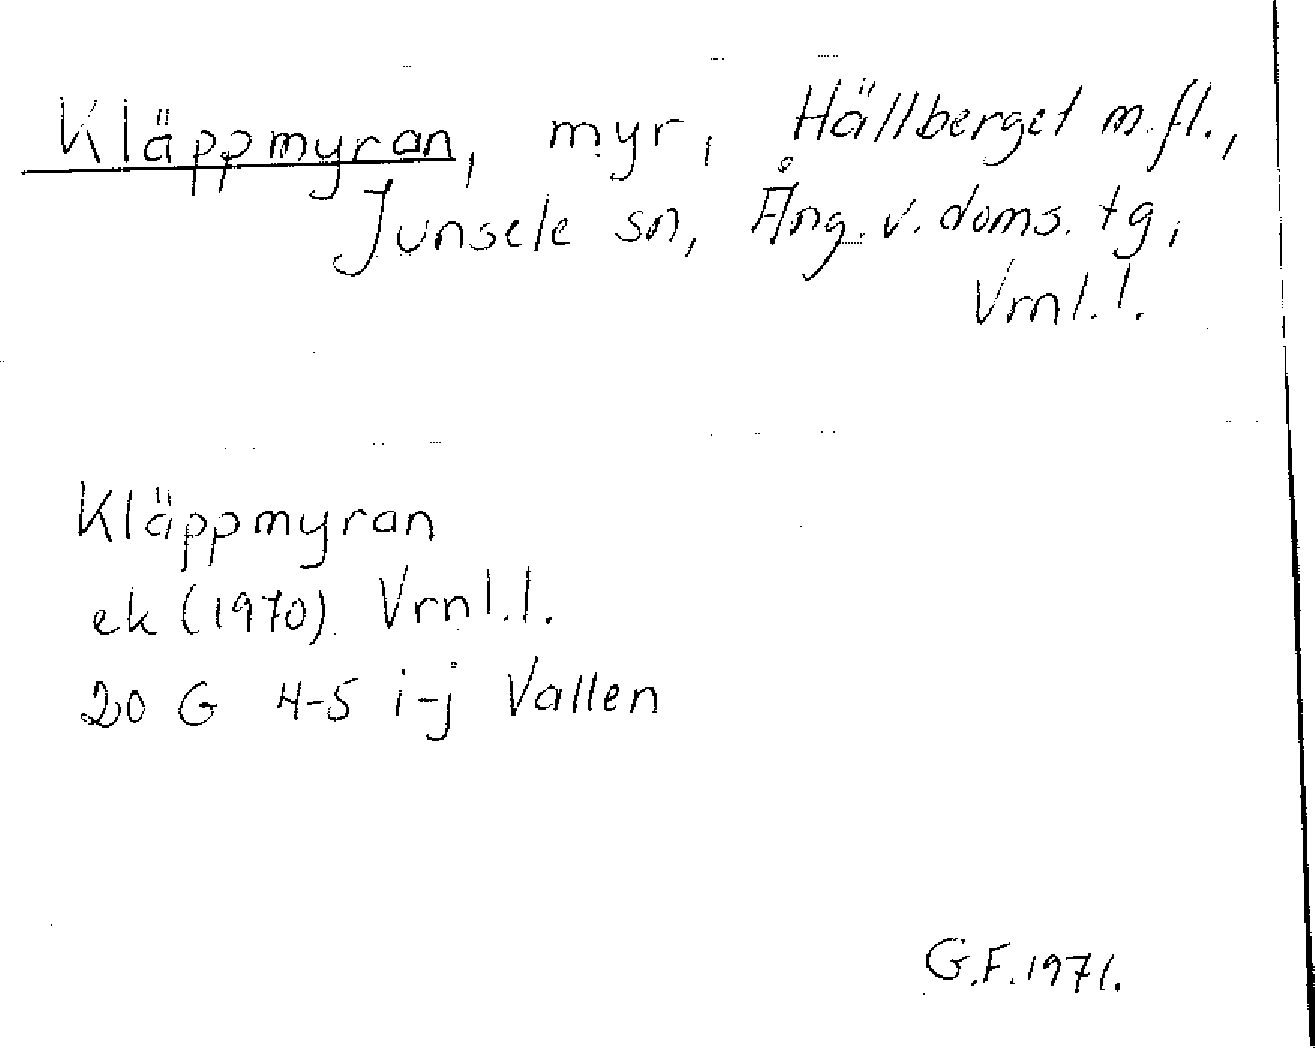 Kläppmyran, myr, Hällberget m.fl.,
Junsele sn, Ång. v. doms. tg,
Vrnl. l.
Kläppmyran
ek (1970) Vrnl. l.
20 G 4-5 i-j Vallen
G.F. 1971.